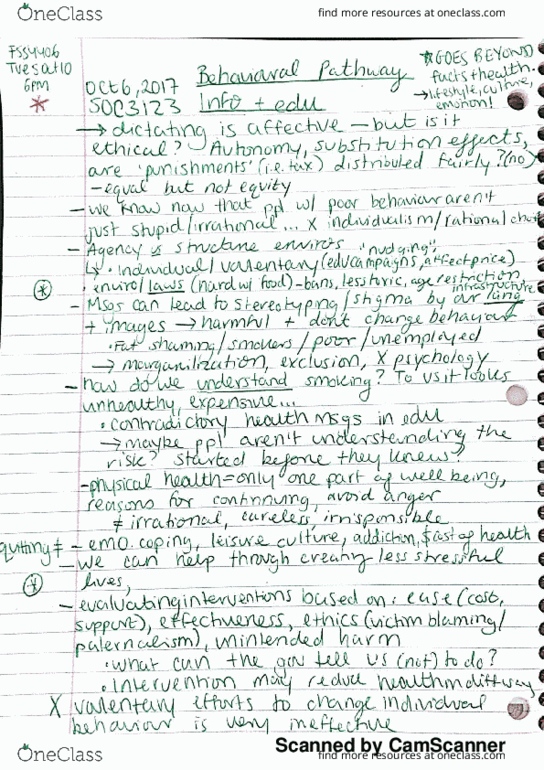 OneClass
find more resources at oneclass.com
FSS4406
Tues at 10
6pm
*
OCT 6, 2017 Behavioural Pathway
SOC3123 Info + edu
*GOES BEYOND
facts + health.
→ lifestyle, culture,
emotion!
→ dictating is affective - but is it
ethical? Autonomy, substitution effects,
are 'punishments' (i.e. tax) distributed fairly? (no)
- equal but not equity
- we know now that ppl w/ poor behaviour aren't
just stupid/irrational... X individualism/rational choice
- Agency vs structure enviros "nudging"
↳ • individual/valentary (edu campaigns, affect price)
• enviro/laws (hard w/ food) - bans, less toxic, age restriction
infrastructure
* - Msgs can lead to stereotyping/stigma by our lang
+ images → harmful + don't change behaviour
• Fat shaming/smokers/poor/unemployed
→ marganilization, exclusion, X psychology
- how do we understand smoking? To us it looks
unhealthy, expensive...
• contradictory health msgs in edu
→ maybe ppl aren't understanding the
risk? Started before they knew?
- physical health = only one part of well being,
reasons for continuing, avoid anger
≠ irrational, careless, irrisponsible
quitting ≠ - emo. coping, leisure culture, addiction, $ cost of health
- we can help through creating less stressful
lives,
* - evaluating interventions based on: ease (cost,
support), effectiveness, ethics (victim blaming/
paternalism), unintended harm
• what can the gov tell us (not) to do?
• Intervention may reduce health
X valentary efforts to change individual
behaviour is very ineffective
Scanned by CamScanner
OneClass
find more resources at oneclass.com